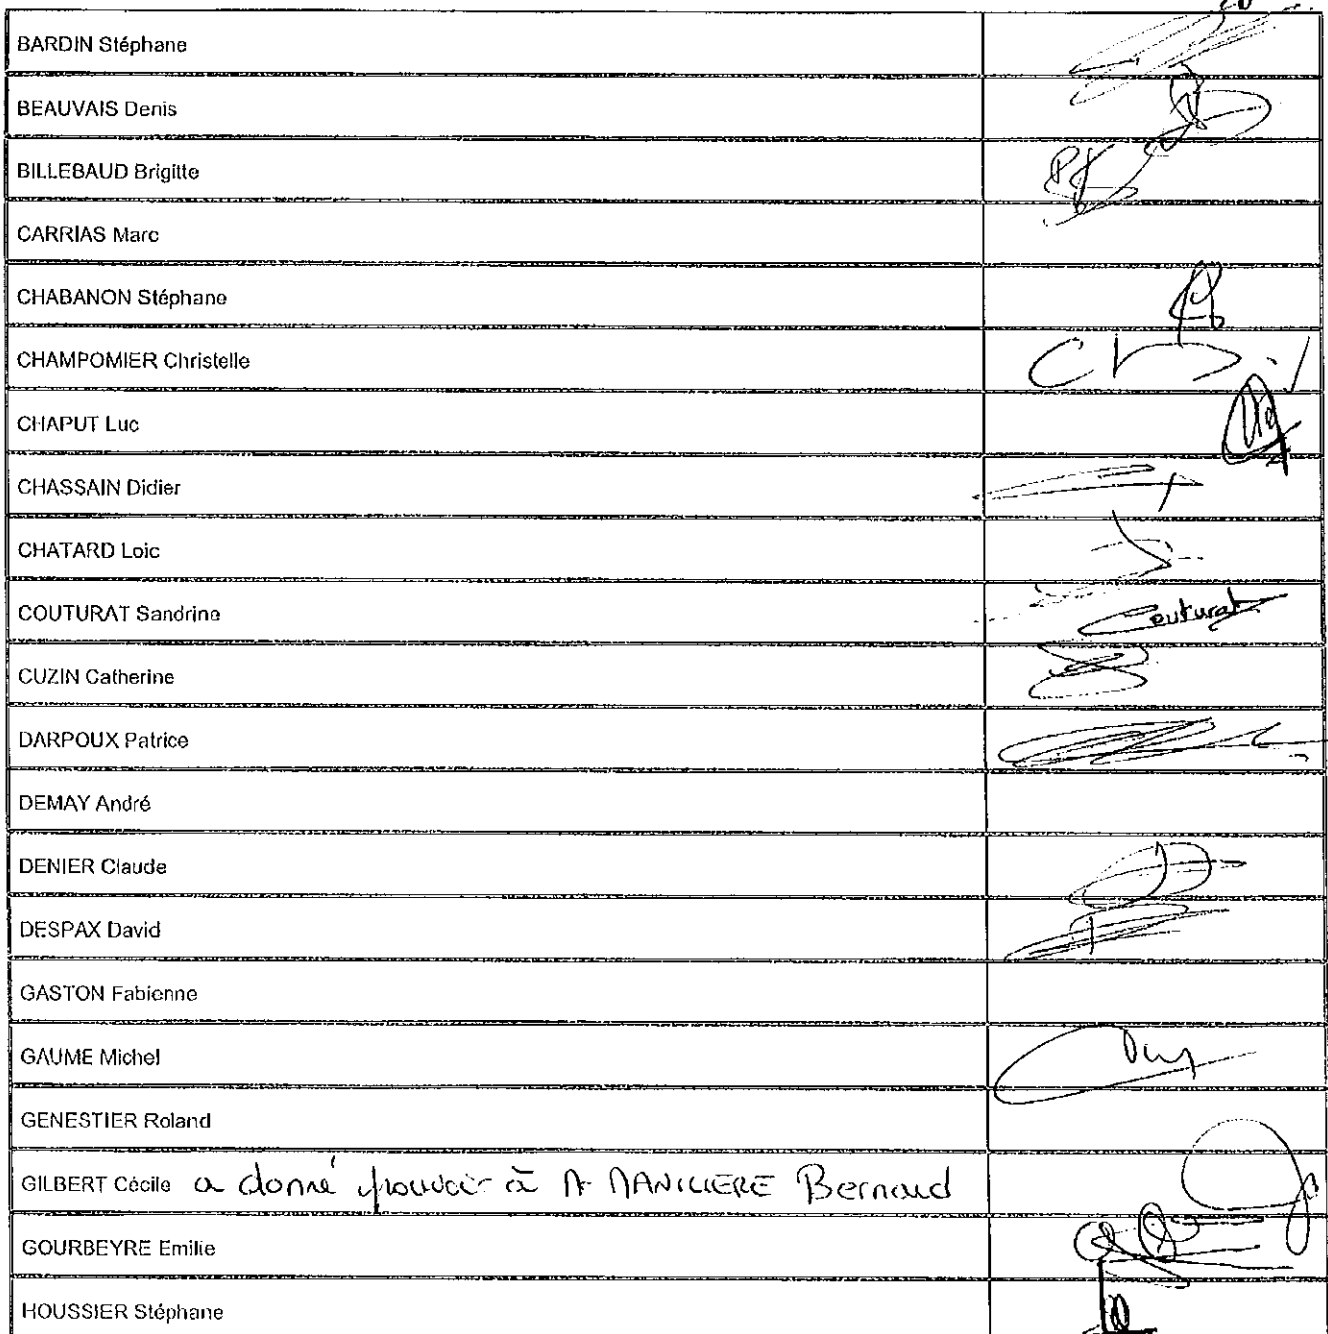 BARDIN Stéphane
BEAUVAIS Denis
BILLEBAUD Brigitte
CARRIAS Marc
CHABANON Stéphane
CHAMPOMIER Christelle
CHAPUT Luc
CHASSAIN Didier
CHATARD Loic
COUTURAT Sandrine Couturat
CUZIN Catherine
DARPOUX Patrice
DEMAY André
DENIER Claude
DESPAX David
GASTON Fabienne
GAUME Michel
GENESTIER Roland
GILBERT Cécile a donné pouvoir à Bernard
GOURBEYRE Emilie
HOUSSIER Stéphane